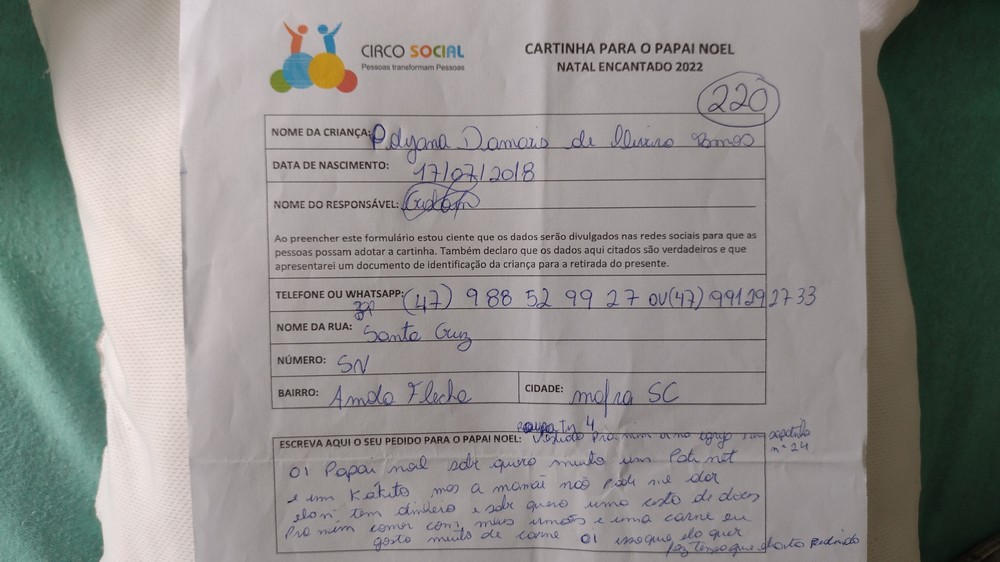 CIRCO SOCIAL
Pessoas transformam Pessoas
CARTINHA PARA O PAPAI NOEL
NATAL ENCANTADO 2022
220
NOME DA CRIANÇA: Damaris de
DATA DE NASCIMENTO: 17/07/2018
NOME DO RESPONSÁVEL:
Ao preencher este formulário estou ciente que os dados serão divulgados nas redes sociais para que as
pessoas possam adotar a cartinha. Também declaro que os dados aqui citados são verdadeiros e que
apresentarei um documento de identificação da criança para a retirada do presente.
TELEFONE OU WHATSAPP: (47) 9 88 52 99 27 OU (47) 991292733
NOME DA RUA: Santa Cruz
NÚMERO: SN
BAIRRO: Flecha
CIDADE: mafra SC
4
ESCREVA AQUI O SEU PEDIDO PARA O PAPAI NOEL: pra mim
n° 24
OI Papai sabe quero muito um
e um mas a mamãe não pode me dar
tem dinheiro e sabe quero uma cesta de doces
pra mim comer com meus irmãos e uma carne eu
gosto muito de carne OI